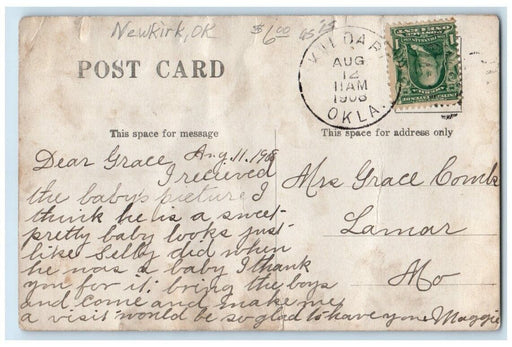 Newkirk, OK
$6.00
POST CARD
KILDARE
AUG
12
11AM
1908
OKLA.
1
This space for message
This space for address only
Dear Grace, Aug. 11. 1908
I recieved
the baby's picture I
think he is a sweet
pretty baby looks just
like Selby did when
he was a baby I thank
you for it. bring the boys
and come and make me
a visit would be so glad to have you Maggie
Mrs Grace Combs
Lamar
Mo